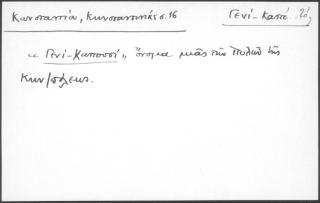 Κωνσταντιά, Κωνσταντινιάς σ. 16 Γενί-Καπού
"Γενί-Καπουσί", ὄνομα μιᾶς τῶν Πυλῶν τῆς
Κων/πόλεως.